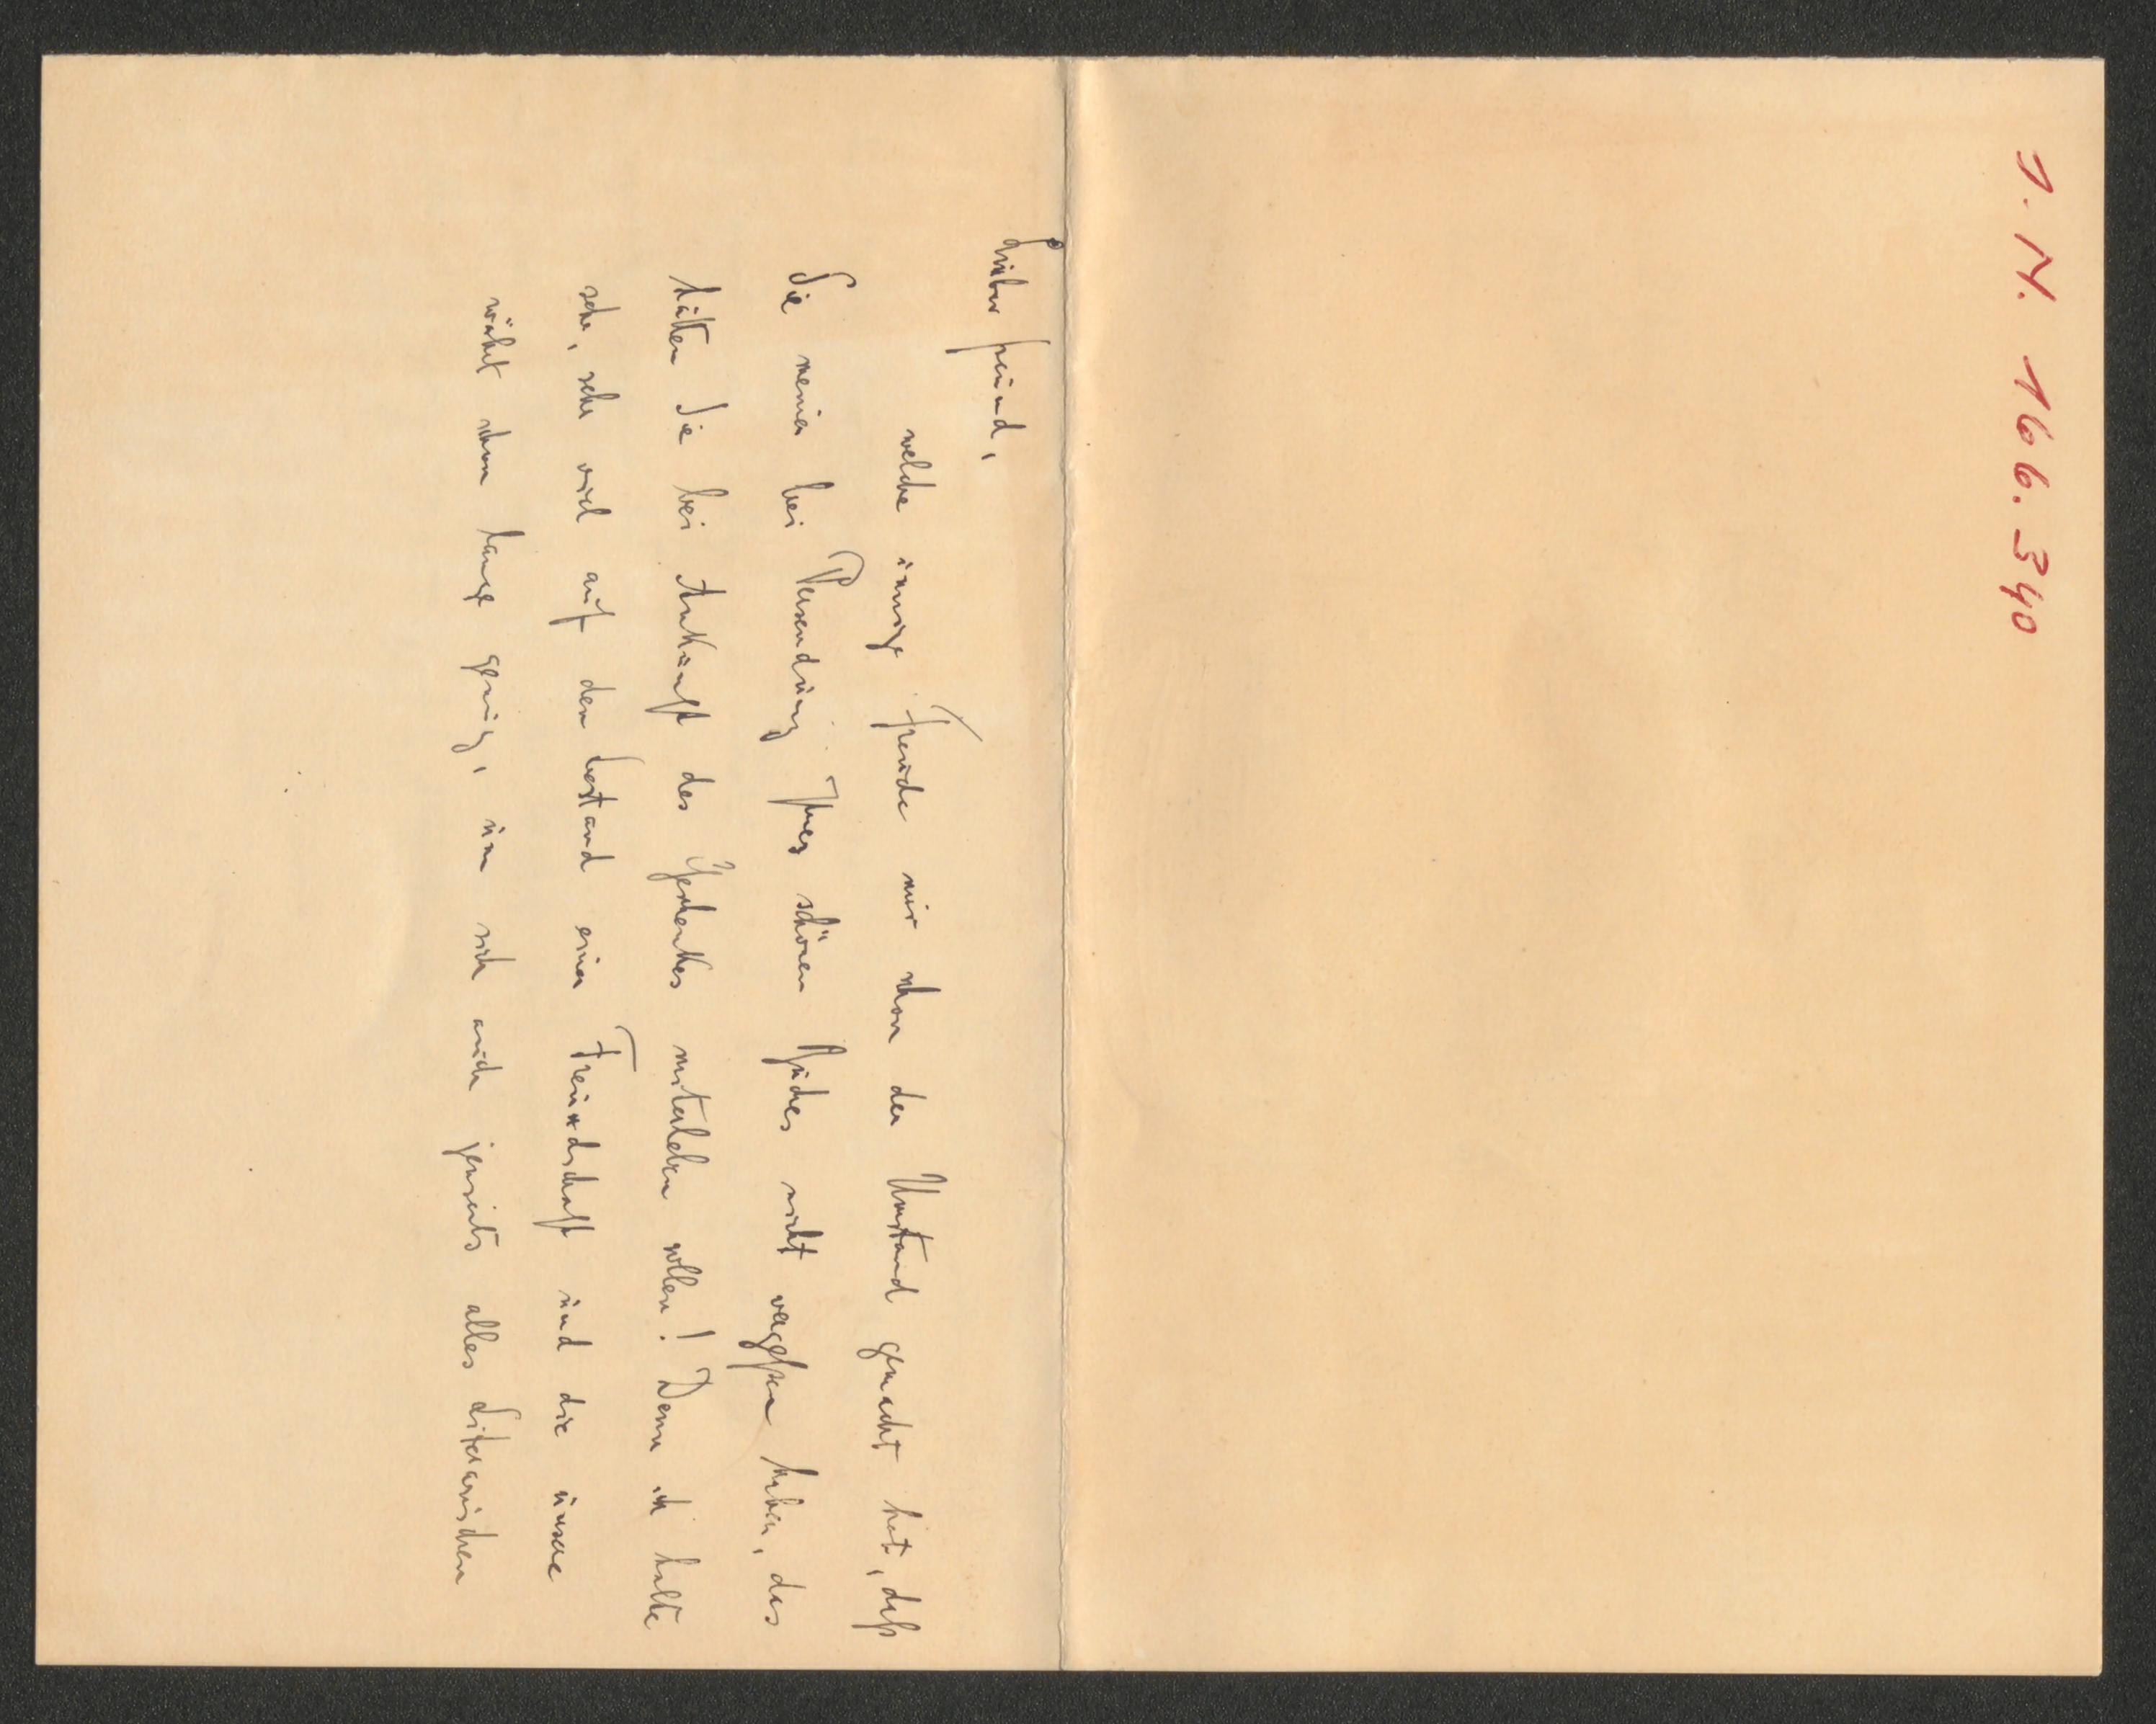 I. N. 166.340
Lieber Freund,
welche innige Freude mir schon der Umstand gemacht hat, daß
Sie meiner bei Versendung Ihres schönen Buches nicht vergeßen haben, das
hätten Sie bei Ankunft des Geschenkes miterleben sollen! Denn ich halte
sehr, sehr viel auf den Bestand einer Freundschaft und die unsere
währt schon lange genug, um sich auch jenseits alles Literarischen